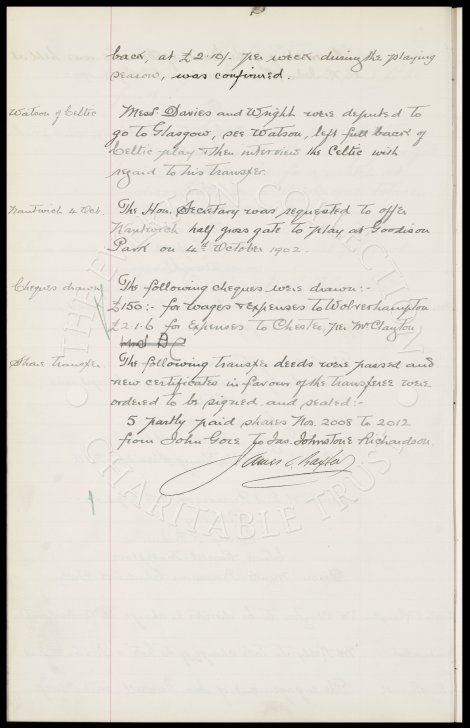 back, at £2.10/- per week during the playing
season, was confirmed.
Watson of Celtic
Messrs Davies and Wright were deputed to
go to Glasgow, see Watson, left full back of
Celtic play & then interview the Celtic with
regard to his transfer.
Nantwich 4 Oct.
The Hon. Secretary was requested to offer
Nantwich half gross gate to play at Goodison
Park on 4th October 1902.
Cheques drawn
The following cheques were drawn:-
£150:- for wages & expenses to Wolverhampton
£2.1.6 for expenses to Chester, per Mr Clayton
Share transfer
The following transfer deeds were passed and
new certificates in favour of the transferee were
ordered to be signed and sealed:-
5 partly paid shares Nos. 2008 to 2012
from John Gore to Jas. Johnstone Richardson
James C. Baxter
THE EVERTON COLLECTION
CHARITABLE TRUST